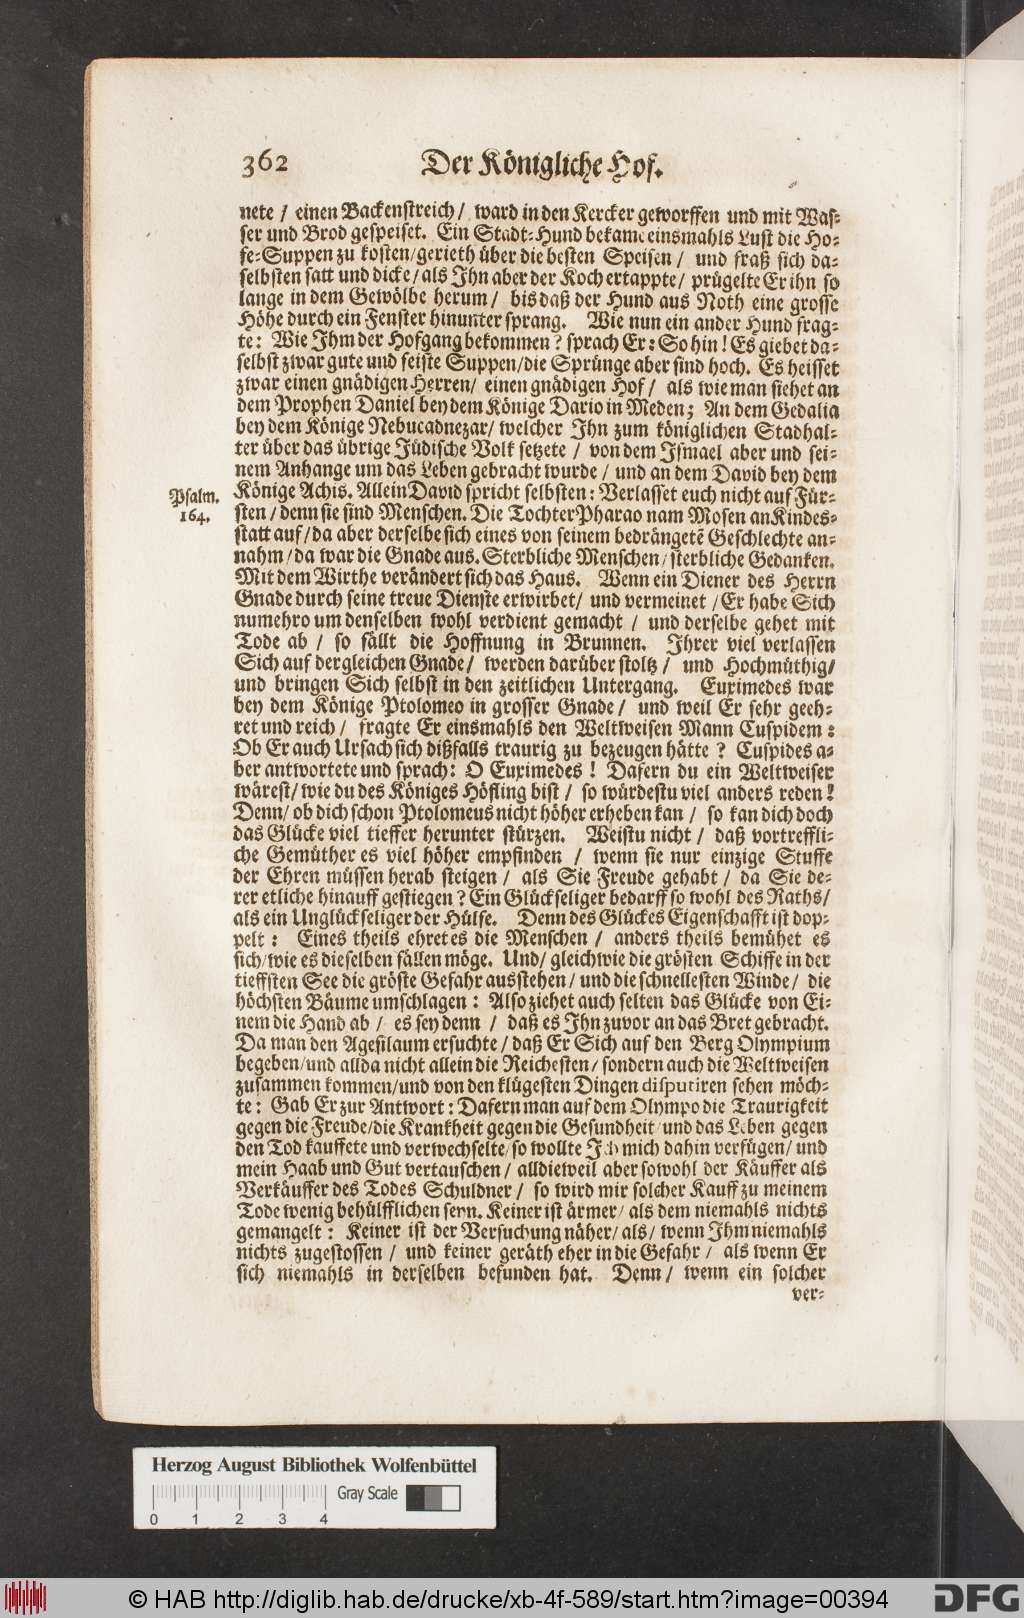 362 Der Königliche Hof.
nete / einen Backenstreich / ward in den Kercker geworffen und mit Was-
ser und Brod gespeiset. Ein Stadt-Hund bekame einsmahls Lust die Ho-
fe-Suppen zu kosten / gerieth über die besten Speisen / und fraß sich da-
selbsten satt und dicke / als Ihn aber der Koch ertappte / prügelte Er ihn so
lange in dem Gewölbe herum / bis daß der Hund aus Noth eine grosse
Höhe durch ein Fenster hinunter sprang. Wie nun ein ander Hund frag-
te: Wie Ihm der Hofgang bekommen? sprach Er: So hin! Es giebet da-
selbst zwar gute und feiste Suppen / die Sprünge aber sind hoch. Es heisset
zwar einen gnädigen Herren / einen gnädigen Hof / als wie man siehet an
dem Prophen Daniel bey dem Könige Dario in Meden; An dem Gedalia
bey dem Könige Nebucadnezar / welcher Ihn zum königlichen Stadhal-
ter über das übrige Jüdische Volk setzete / von dem Ismael aber und sei-
nem Anhange um das Leben gebracht wurde / und an dem David bey dem
Psalm.
164.
Könige Achis. Allein David spricht selbsten: Verlasset euch nicht auf Für-
sten / denn sie sind Menschen. Die Tochter Pharao nam Mosen an Kindes-
statt auf / da aber derselbe sich eines von seinem bedrängetē Geschlechte an-
nahm / da war die Gnade aus. Sterbliche Menschen / sterbliche Gedanken.
Mit dem Wirthe verändert sich das Haus. Wenn ein Diener des Herrn
Gnade durch seine treue Dienste erwirbet / und vermeinet / Er habe Sich
numehro um denselben wohl verdient gemacht / und derselbe gehet mit
Tode ab / so fällt die Hoffnung in Brunnen. Ihrer viel verlassen
Sich auf dergleichen Gnade / werden darüber stoltz / und Hochmüthig /
und bringen Sich selbst in den zeitlichen Untergang. Euximedes war
bey dem Könige Ptolomeo in grosser Gnade / und weil Er sehr geeh-
ret und reich / fragte Er einsmahls den Weltweisen Mann Cuspidem:
Ob Er auch Ursach sich dißfalls traurig zu bezeugen hätte? Cuspides a-
ber antwortete und sprach: O Euximedes! Dafern du ein Weltweiser
wärest / wie du des Königes Höfling bist / so würdestu viel anders reden!
Denn / ob dich schon Ptolomeus nicht höher erheben kan / so kan dich doch
das Glücke viel tieffer herunter stürzen. Weistu nicht / daß vortreffli-
che Gemüther es viel höher empfinden / wenn sie nur einzige Stuffe
der Ehren müssen herab steigen / als Sie Freude gehabt / da Sie de-
rer etliche hinauff gestiegen? Ein Glückseliger bedarff so wohl des Raths /
als ein Unglückseliger der Hülfe. Denn des Glückes Eigenschafft ist dop-
pelt: Eines theils ehret es die Menschen / anders theils bemühet es
sich / wie es dieselben fällen möge. Und / gleichwie die grösten Schiffe in der
tieffsten See die gröste Gefahr ausstehen / und die schnellesten Winde / die
höchsten Bäume umschlagen: Also ziehet auch selten das Glücke von Ei-
nem die Hand ab / es sey denn / daß es Ihn zuvor an das Bret gebracht.
Da man den Agesilaum ersuchte / daß Er Sich auf den Berg Olympium
begeben / und allda nicht allein die Reichesten / sondern auch die Weltweisen
zusammen kommen / und von den klügesten Dingen disputiren sehen möch-
te: Gab Er zur Antwort: Dafern man auf dem Olympo die Traurigkeit
gegen die Freude / die Krankheit gegen die Gesundheit / und das Leben gegen
den Tod kauffete und verwechselte / so wollte Ich mich dahin verfügen / und
mein Haab und Gut vertauschen / alldieweil aber sowohl der Käuffer als
Verkäuffer des Todes Schuldner / so wird mir solcher Kauff zu meinem
Tode wenig behülfflichen seyn. Keiner ist ärmer / als dem niemahls nichts
gemangelt: Keiner ist der Versuchung näher / als / wenn Ihm niemahls
nichts zugestossen / und keiner geräth eher in die Gefahr / als wenn Er
sich niemahls in derselben befunden hat. Denn / wenn ein solcher
ver-
Herzog August Bibliothek Wolfenbüttel
Gray Scale
0 1 2 3 4
© HAB http://diglib.hab.de/drucke/xb-4f-589/start.htm?image=00394
DFG